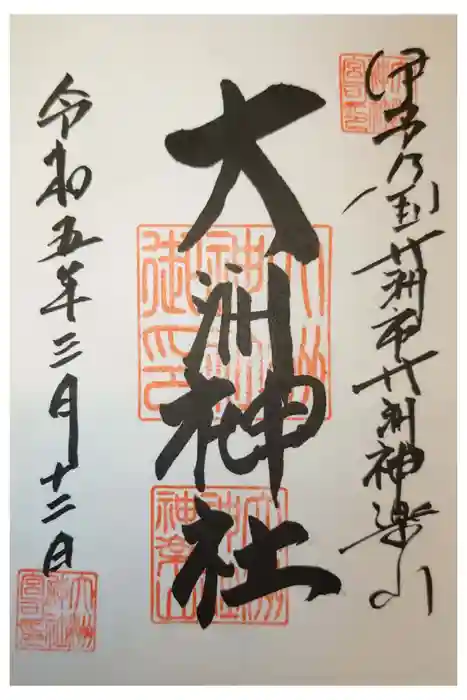 伊予乃国大洲市大洲神楽山
大洲神社
令和五年三月十二日